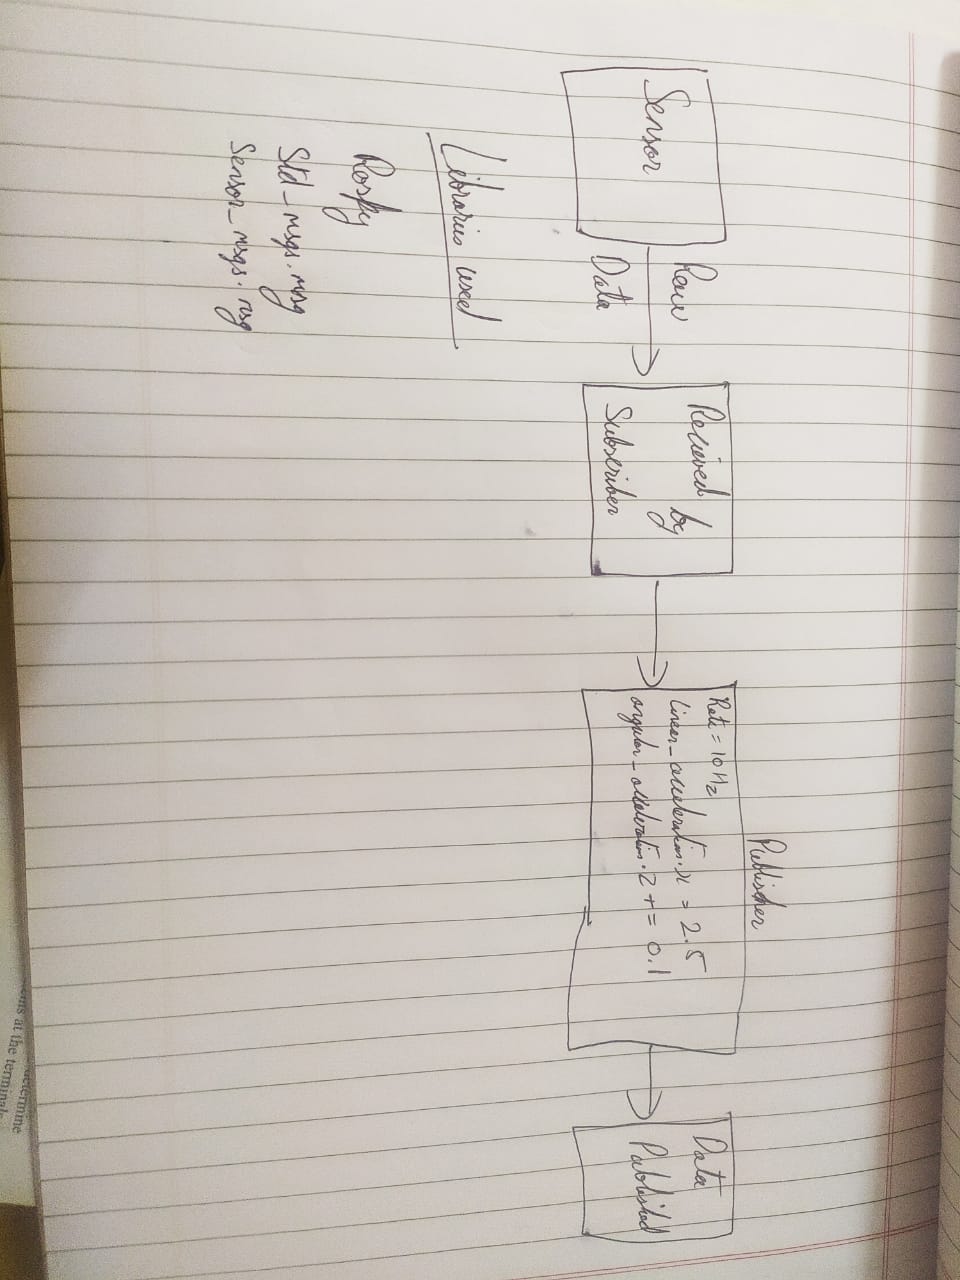 Sensor
Raw
Data
Recieved by
Subscriber
Publisher
Rate = 10 Hz
linear_acceleration.x = 2.5
angular_acceleration.z += 0.1
Data
Published
Libraries used
Rospy
Std_msgs.msg
Sensor_msgs.msg
at the
determine
terminals